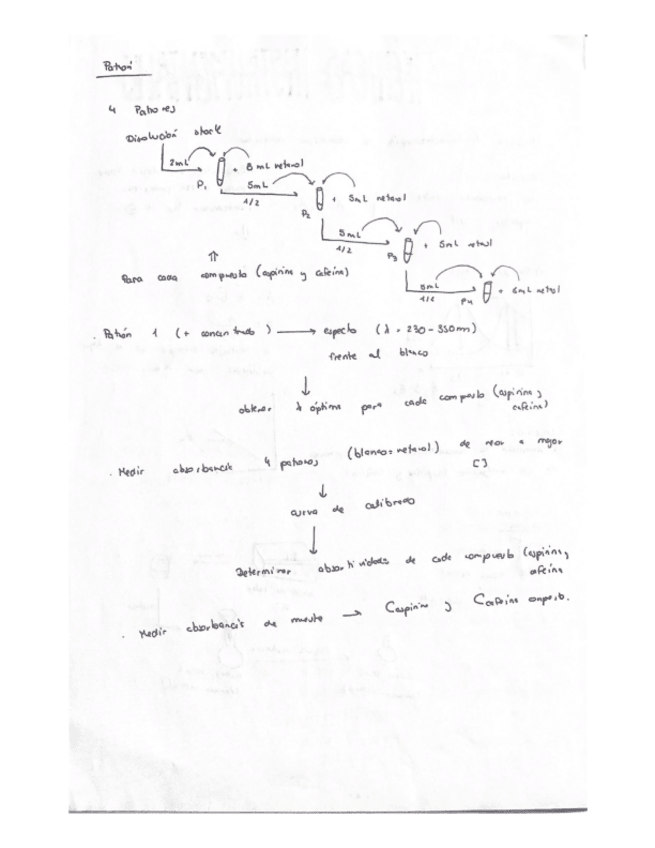 Patrón
4 Patrones
Disolución stock
2mL
+ 8 mL metanol
P1
5mL
1/2
+ 5mL metanol
P2
5mL
1/2
+ 5mL metanol
P3
5mL
1/2
P4
Para cada compuesto (aspirina y cafeína)
. Patrón 1 (+ concentrado) → espectro (λ = 230 - 350nm)
frente al blanco
obtener λ óptima para cada compuesto (aspirina y
cafeína)
. Medir absorbancia 4 patrones (blanco = metanol) de menor a mayor
[]
curva de calibrado
Determinar absortividades de cada compuesto (aspirina y
cafeína
. Medir absorbancia de muestra → Caspirina y Ccafeína